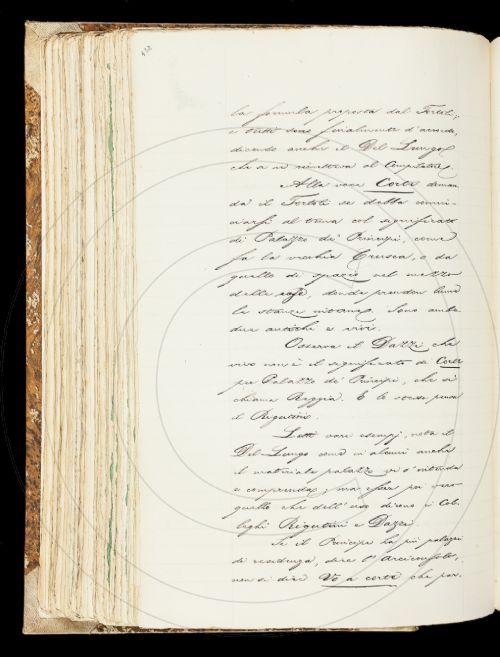 432
la formula proposta dal Tortoli,
e tutti sono finalmente d'accordo,
dicendo anche il Del Lungo
che si rimetteva al Compilatore.
Alla voce Corte doman
da il Tortoli se debba comin-
ciarsi il tema col significato
di Palazzo de' Principi, come
fa la vecchia Crusca, o da
quello di spazio nel mezzo
delle case, donde prendon lume
le stanze intorno. Sono ambe
due antichi e vivi.
Osserva il Dazzi che
vivo non è il significato di Corte
per Palazzo de' Principi, che si
chiama Reggia. E lo stesso pensa
il Rigutini.
Letti vari esempj, nota il
Del-Lungo come in alcuni anche
il materiale palazzo vi s'intenda
e comprenda; ma esser per vero
quello che dell'uso dicono i Col-
leghi Rigutini e Dazzi.
Se il Principe ha più palazzi
di residenza, dice l'Arciconsolo,
non si dice Vo a corte che per